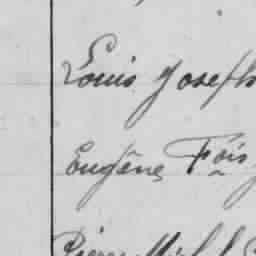 Louis Joseph
Eugène Fois
Pierre